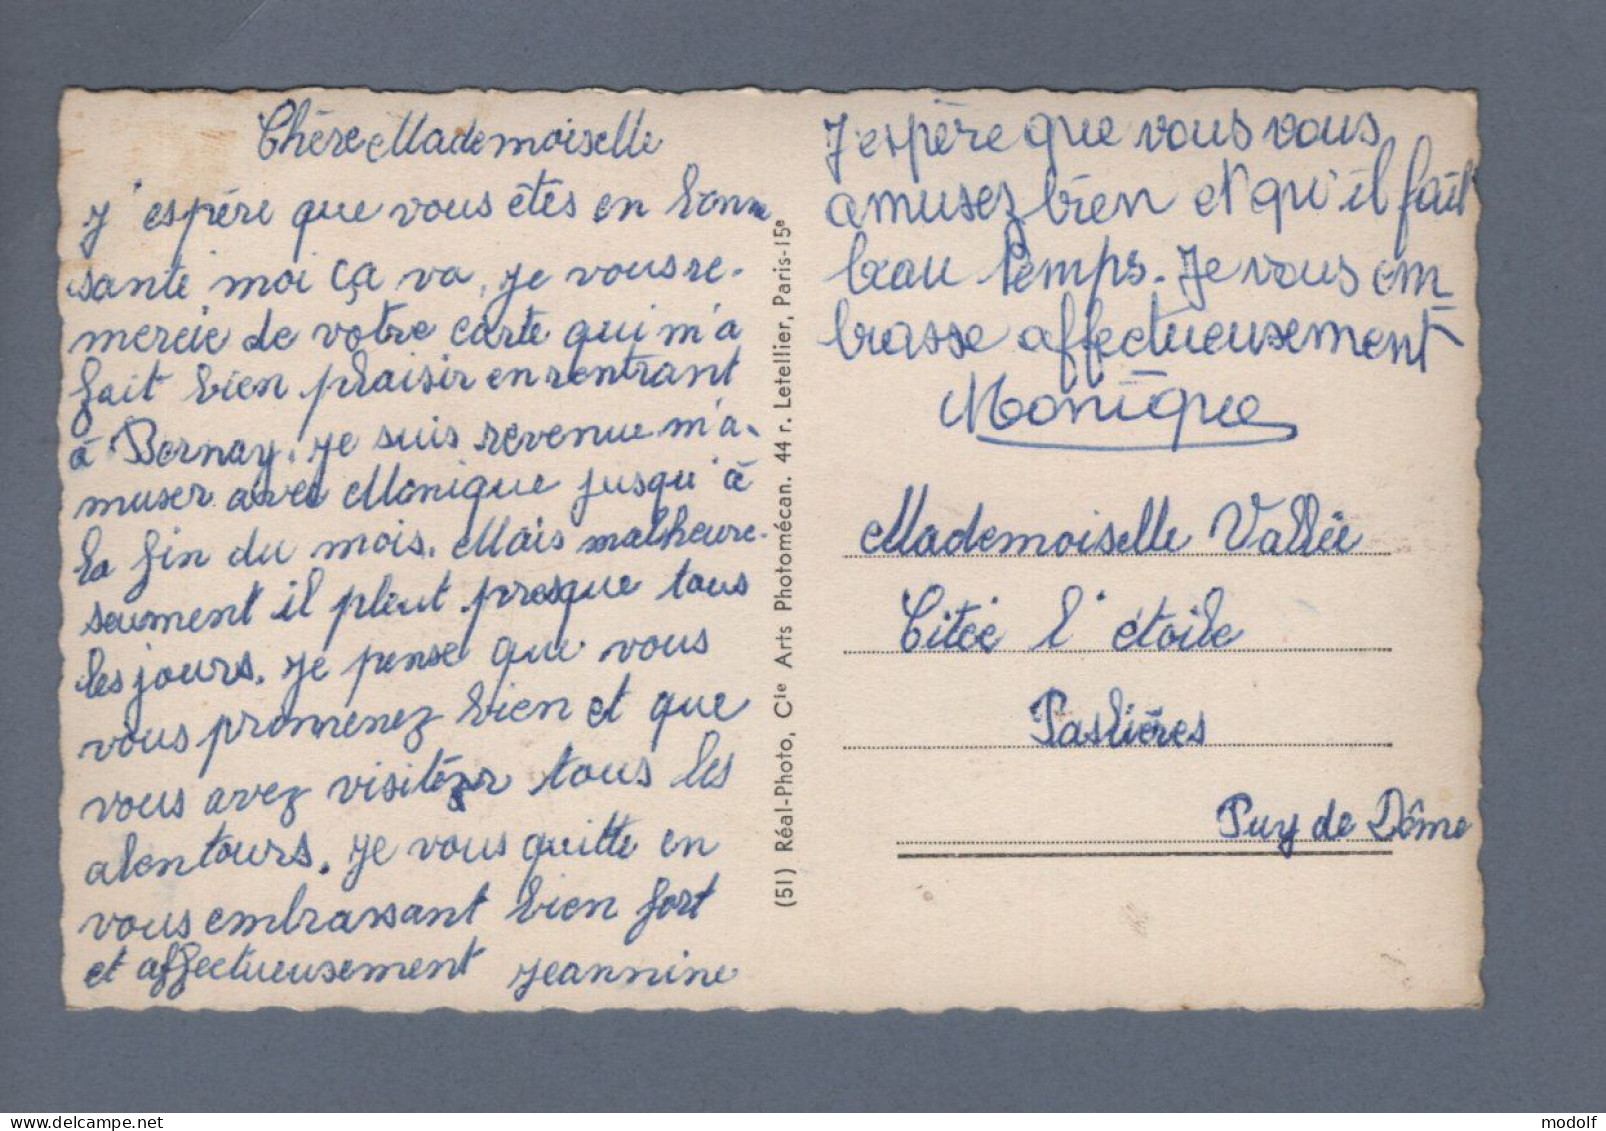 Chère Mademoiselle
J'espére que vous êtes en bonne
santé moi ça va, je vous re-
mercie de votre carte qui m'a
fait bien plaisir en rentrant
à Bernay. Je suis revenue m'a-
muser avec Monique jusqu'à
la fin du mois. Mais malheure-
seument il pleut presque tous
les jours. Je pense que vous
vous promenez bien et que
vous avez visitéz tous les
alentours. Je vous quitte en
vous embrassant bien fort
et affectueusement Jeannine
(51) Réal-Photo, Cie Arts Photomécan. 44 r. Letellier, Paris-15e
J'espère que vous vous
amusez bien et qu'il fait
beau temps. Je vous em-
brasse affectueusement
Monique
Mademoiselle Vallée
Citée l'étoile
Paslières
Puy de Dôme
delcampe.net
modolf